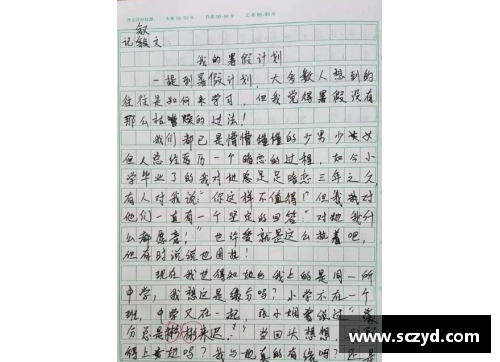 叙
记叙文
我的暑假计划
一提到暑假计划，大多数人想到的
往往是如何来学习，但我觉得暑假没有
那么枯燥的过法！
我们都已是懵懵懂懂的少男少女
但人总经历一个暗恋的过程，如今小
学毕业了的我对她总是足暗恋三年之久
有人对我说："你这样不值得！"但我对
他们一直有一个坚定的回答："对她我什
么都愿意！"也许爱就是这么执着吧，
但有时说说也困扰！
现在我也得知她和我上的是同一所
中学，我想这是缘分吗？小学不在一个
班，中学又在一起，张小娴曾说过"缘
分总是 来迟？"当回头想想，
得上 她吗？我与她真的有缘吗？还是
www.sczyd.com